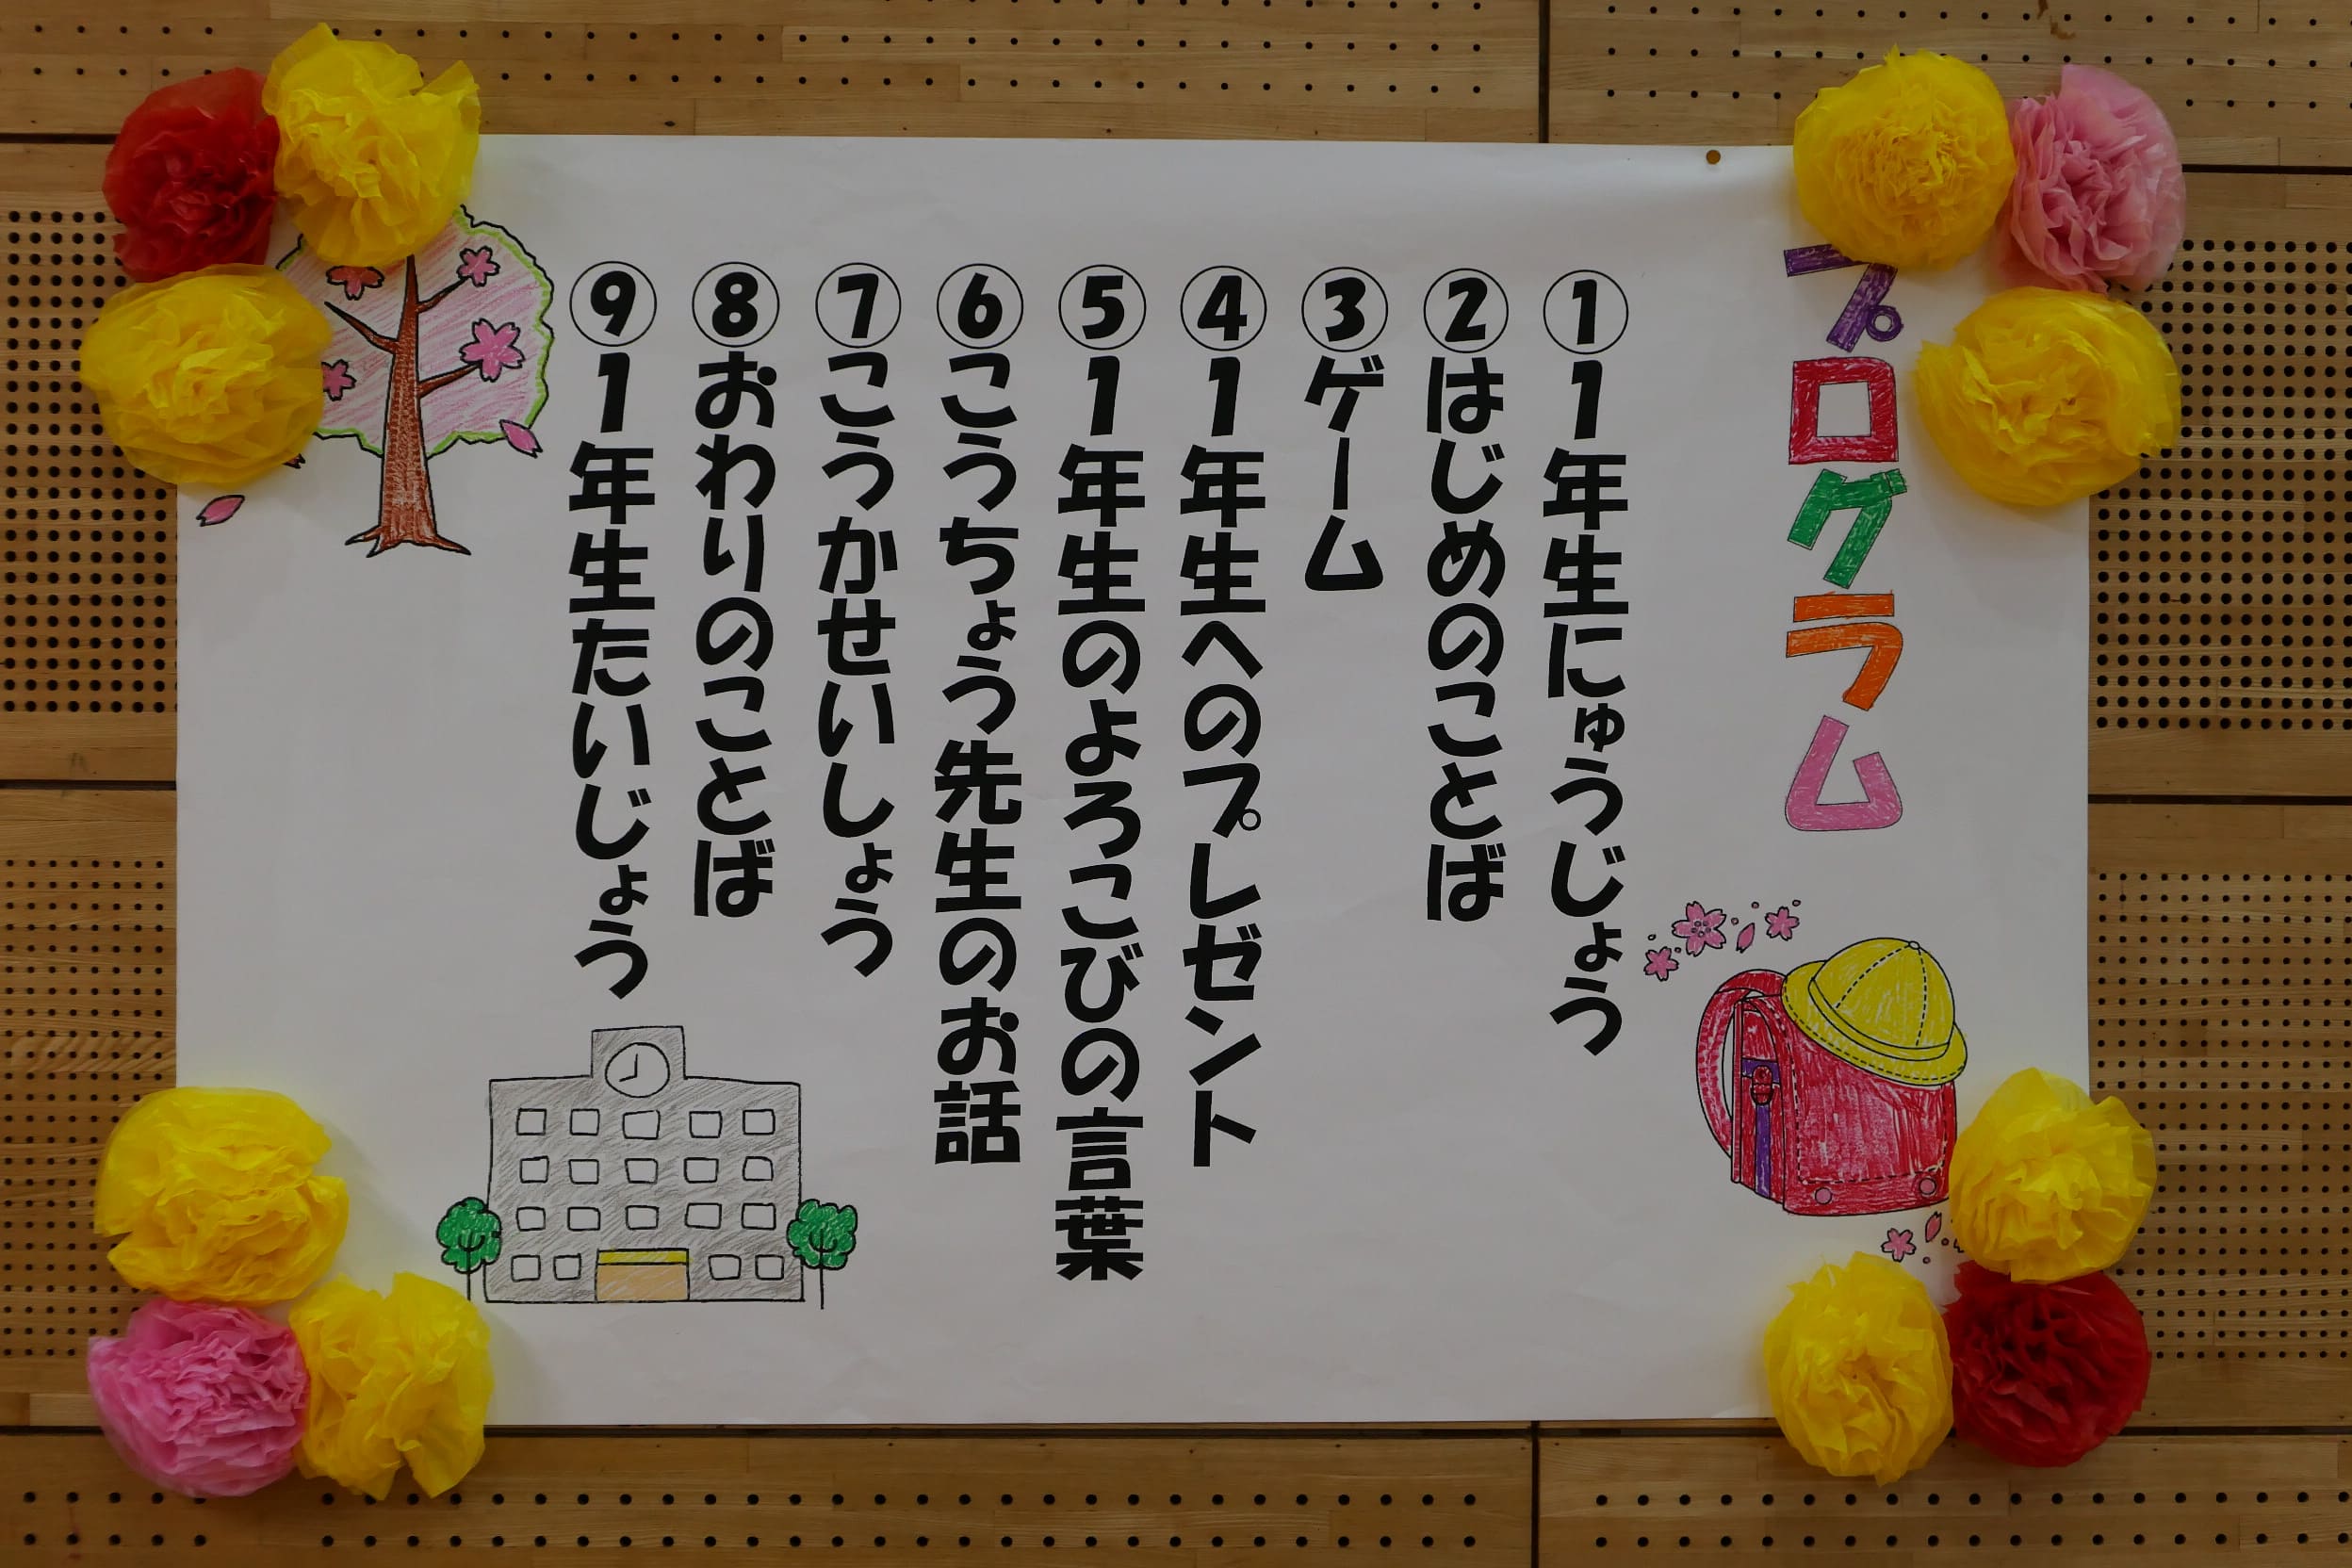 プログラム
①1年生にゅうじょう
②はじめのことば
③ゲーム
④1年生へのプレゼント
⑤1年生のよろこびの言葉
⑥こうちょう先生のお話
⑦こうかせいしょう
⑧おわりのことば
⑨1年生たいじょう